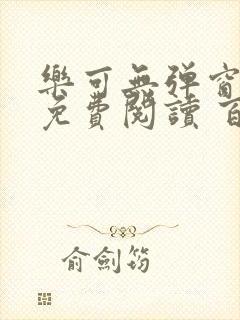 樂可無彈窗
免費閱讀 百
俞劍筠